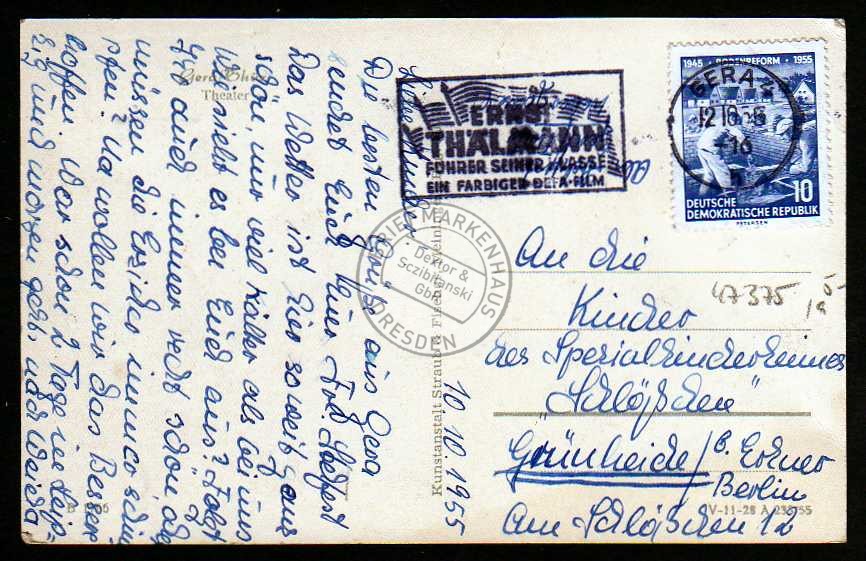 Gera
Theater
1945 · BODENREFORM · 1955
GERA
12.10.55
-16
10
DEUTSCHE
DEMOKRATISCHE REPUBLIK
PETERSEN
ERNST
THÄLMANN
FÜHRER SEINER KLASSE
EIN FARBIGER DEFA-FILM
BRIEFMARKENHAUS
Dektor &
Sczibilanski
GbR
DRESDEN
Kunstanstalt Straub & Fischer, Meiningen
10 10 1955
Liebe Kinder!
Die besten Grüße aus Gera
sendet Euch Eure Frl. Seefest
Das Wetter ist hier soweit ganz
schön, nur viel kälter als bei uns
Wie sieht es bei Euch aus? Folgt
Ihr auch immer recht schön, oder
müssen die Erzieher immer schim
pfen? Na wollen wir das Besser
hoffen. War schon 2 Tage in Leip-
zig und morgen geht's nach Weida
An die
Kinder
des Spezialkinderheimes
„Schlößchen"
Grünheide / b. Erkner
Berlin
Am Schlößchen 12
47375
B 1406
V-11-28 A 233/55